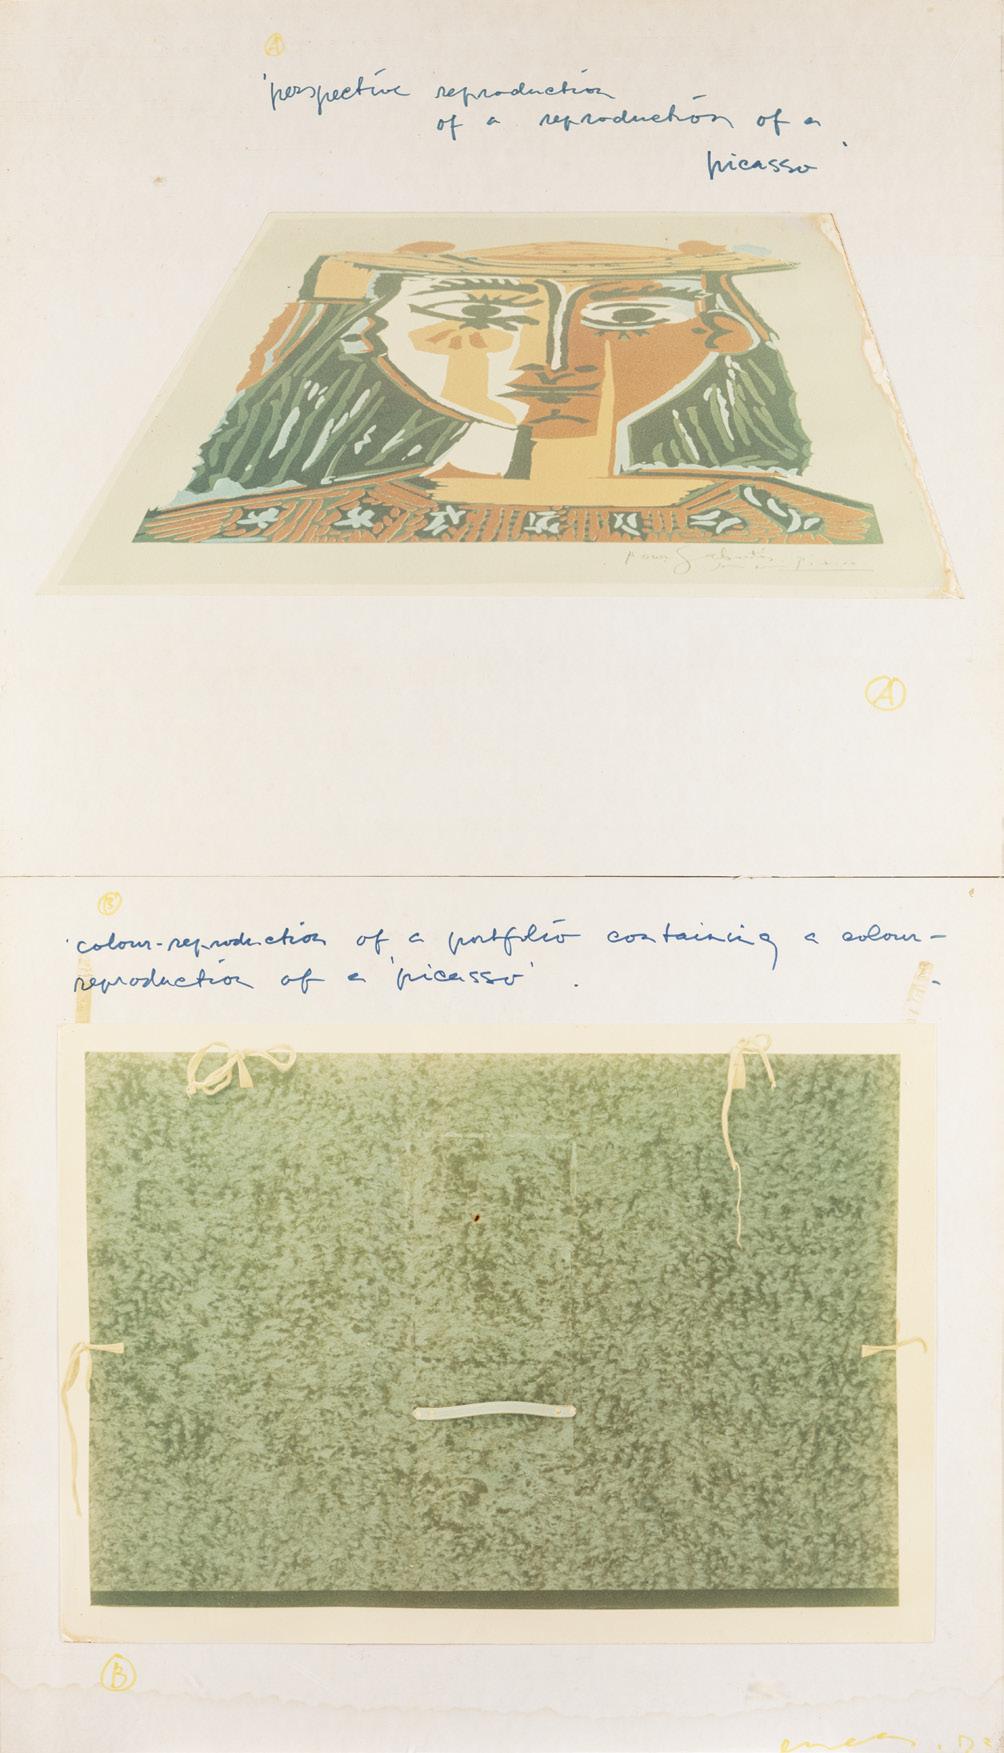 A
'perspective reproduction
of a reproduction of a
picasso'
pour Sabartés
A
B
'colour-reproduction of a portfolio containing a colour-
reproduction of a 'picasso'.
B